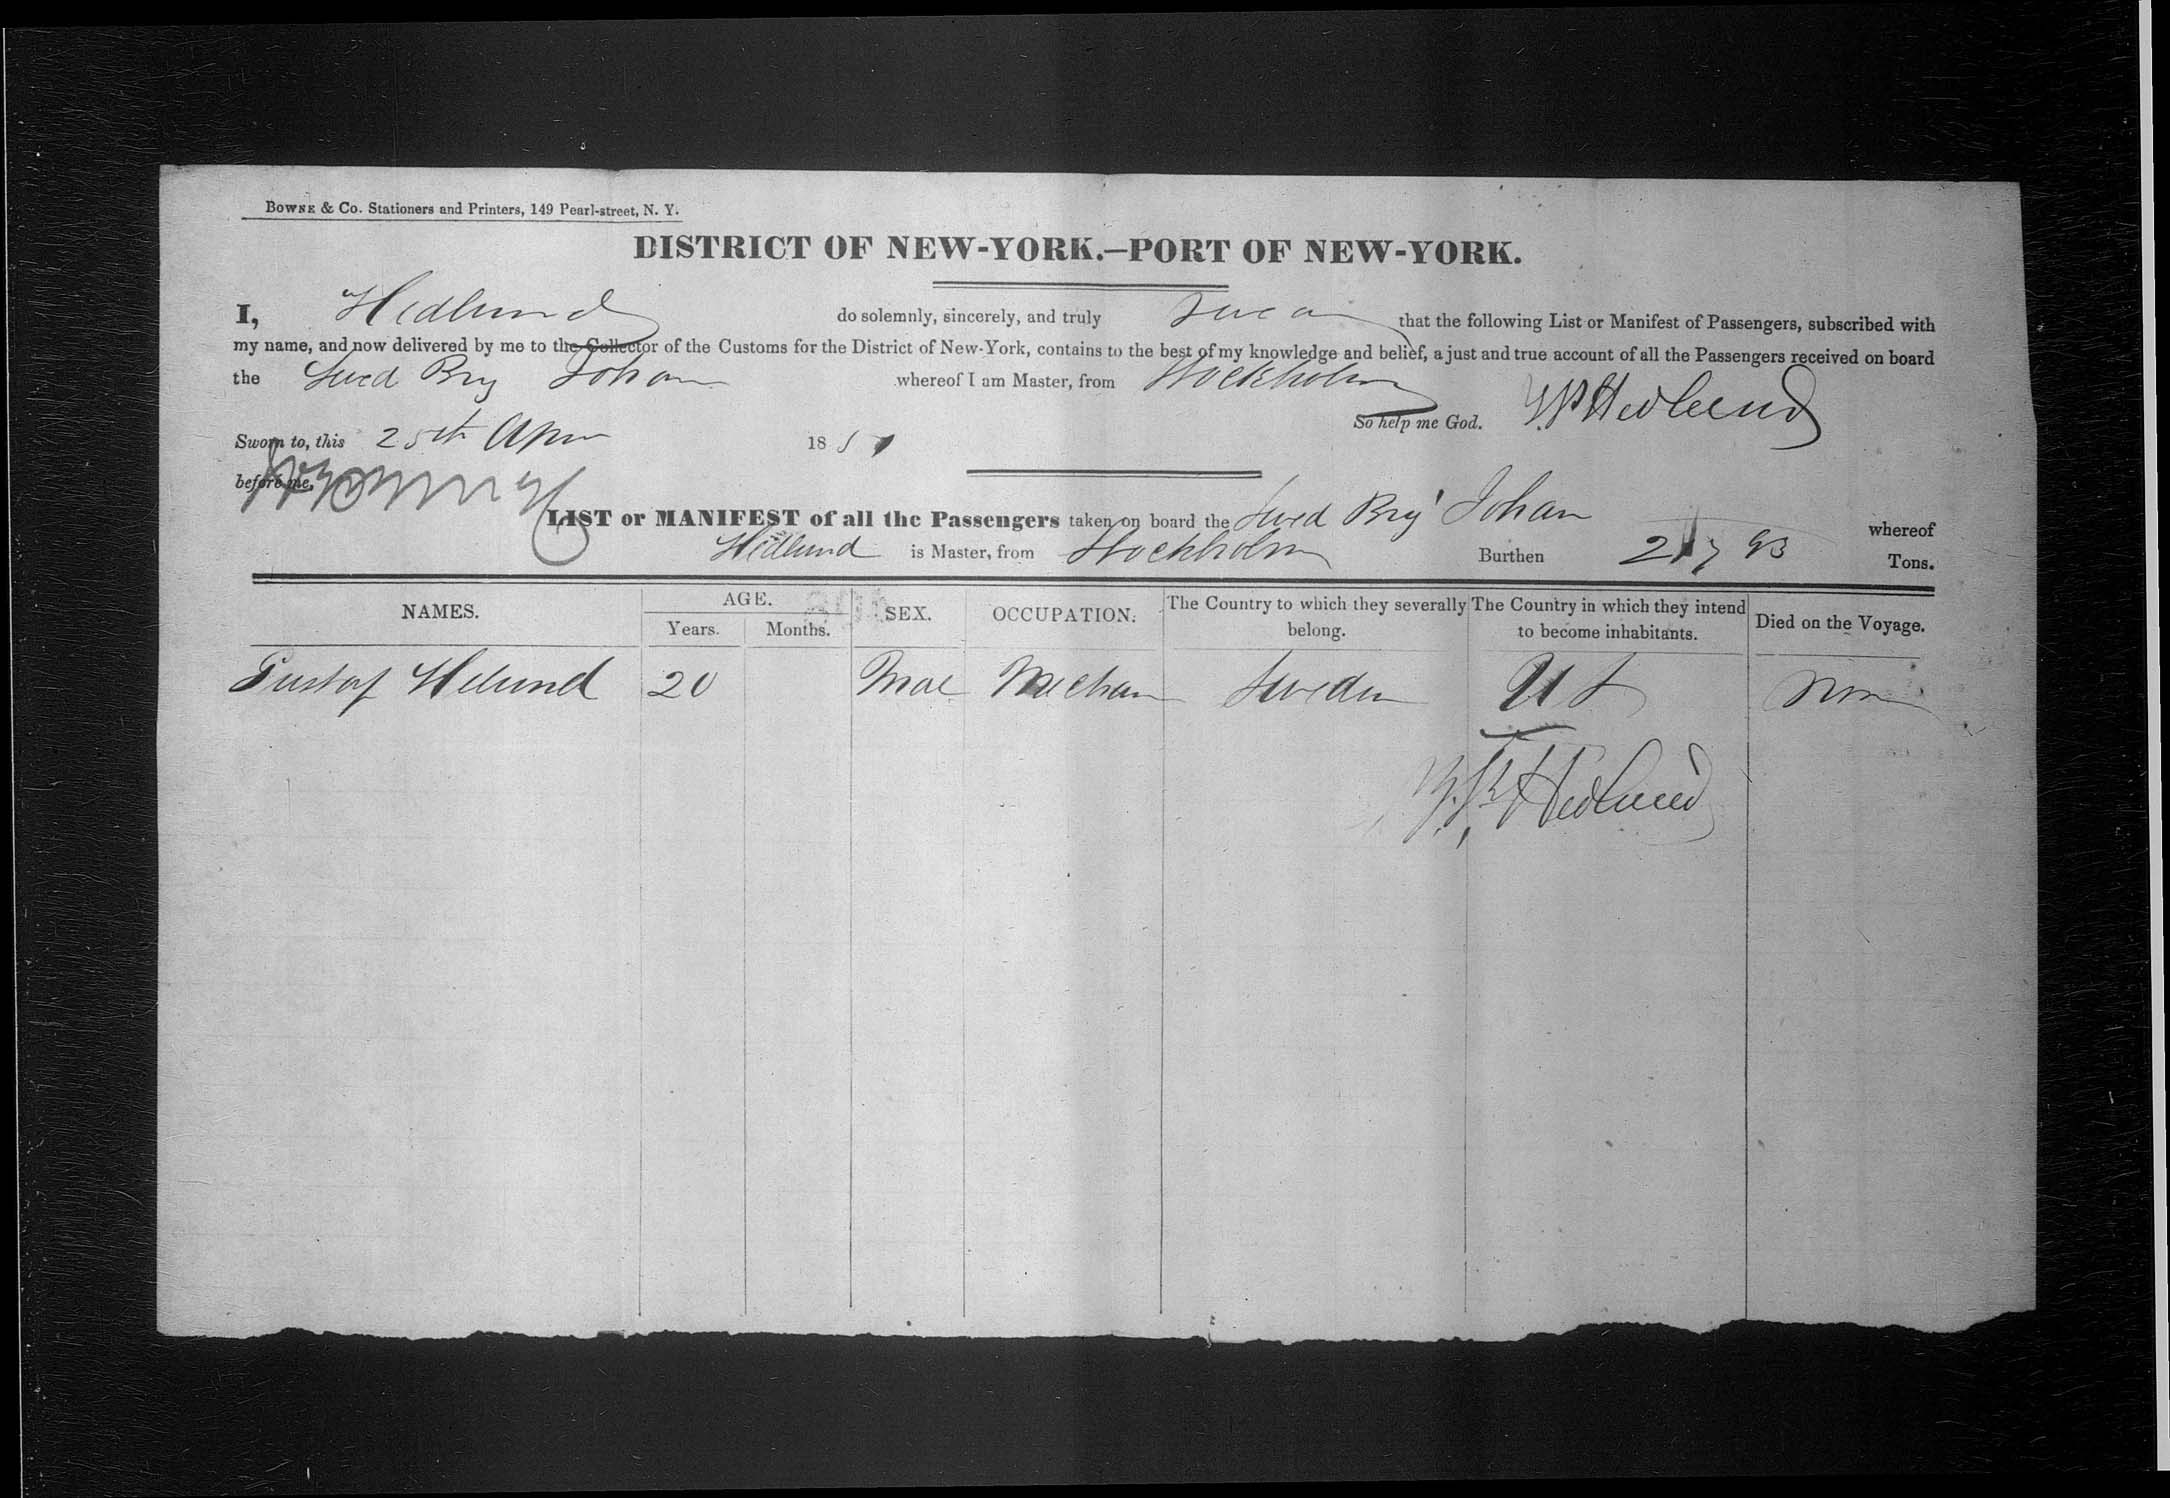 BOWNE & CO. Stationers and Printers, 149 Pearl-street, N. Y.
DISTRICT OF NEW-YORK.—PORT OF NEW-YORK.
I, Hedlund do solemnly, sincerely, and truly swear that the following List or Manifest of Passengers, subscribed with
my name, and now delivered by me to the Collector of the Customs for the District of New-York, contains to the best of my knowledge and belief, a just and true account of all the Passengers received on board
the Swed Brig Johan whereof I am Master, from Stockholm
So help me God. Hedlund
Sworn to, this 25th Apr 185
before me,
LIST or MANIFEST of all the Passengers taken on board the Swed Brig Johan whereof
Hedlund is Master, from Stockholm Burthen Tons.
NAMES. AGE. SEX. OCCUPATION. The Country to which they severally belong. The Country in which they intend to become inhabitants. Died on the Voyage.
Years. Months.
Gustaf Helund 20 Mal Mechan Sweden U S Non
Hedlund